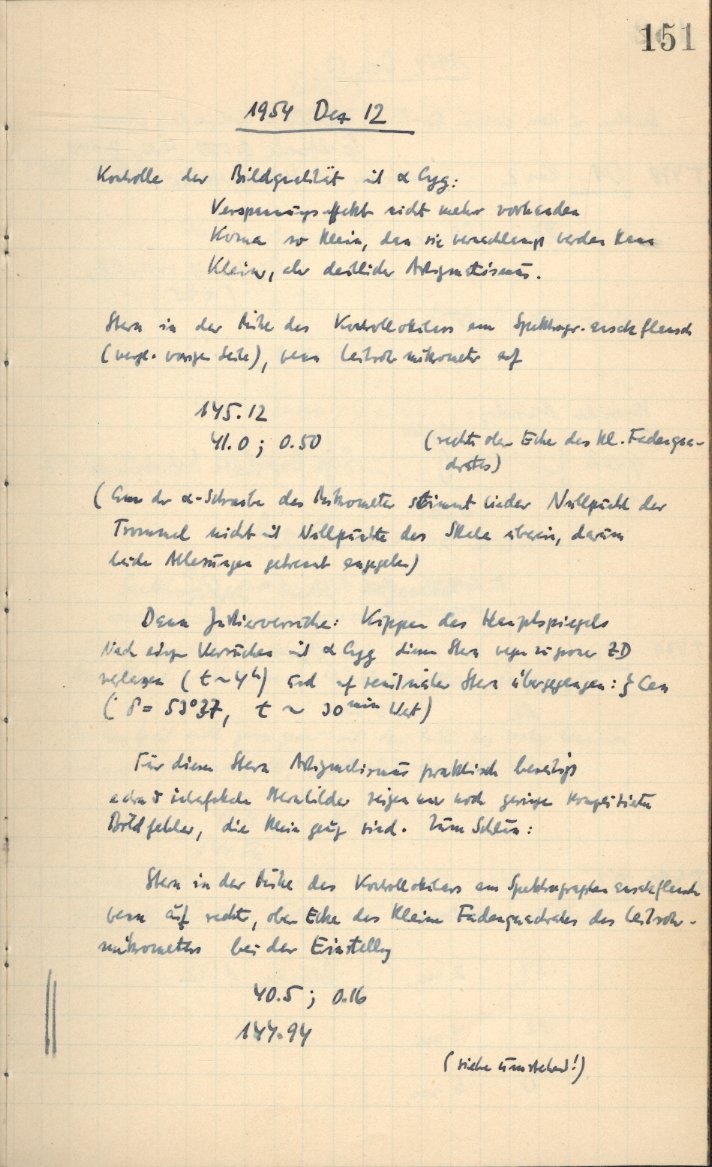 151
1954 Dez 12
Kontrolle der Bildqualität mit α Cyg:
Verspannungseffekt nicht mehr vorhanden
Koma so klein, dass sie vernachlässigt werden kann
Kleiner, aber deutlicher Astigmatismus.
Stern in der Mitte des Kontrollokulars am Spektrogr.-ansatzflansch
(vergl. vorige Seite), wenn Leitrohrmikrometer auf
145.12
41.0 ; 0.50 (rechte obere Ecke des kl. Fadenqua-
drates)
( der α-Schraube des Mikrometer stimmt leider Nullpunkt der
Trommel nicht mit Nullpunkte der Skala überein, darum
beide Ablesungen getrennt angegeben)
Dann Justierversuche: Kippen des Hauptspiegels
Nach einigen Versuchen mit α Cyg diesen Stern wegen zu grosser ZD
verlassen (t ~ 4h) und auf zenitnäher Stern übergegangen:
(δ = 53°37, t ~ 30min West)
Für diesen Stern Astigmatismus praktisch beseitigt
Sternbilder zeigen nur noch geringe komplizierte
Bildfehler, die klein genug sind. Zum Schluss:
Stern in der Mitte des Kontrollokulars am Spektrographenansatzflansch
wenn auf rechte, obere Ecke des kleinen Fadenquadrates des Leitrohr-
mikrometers bei der Einstellung
40.5 ; 0.16
147.94
(siehe umstehend!)